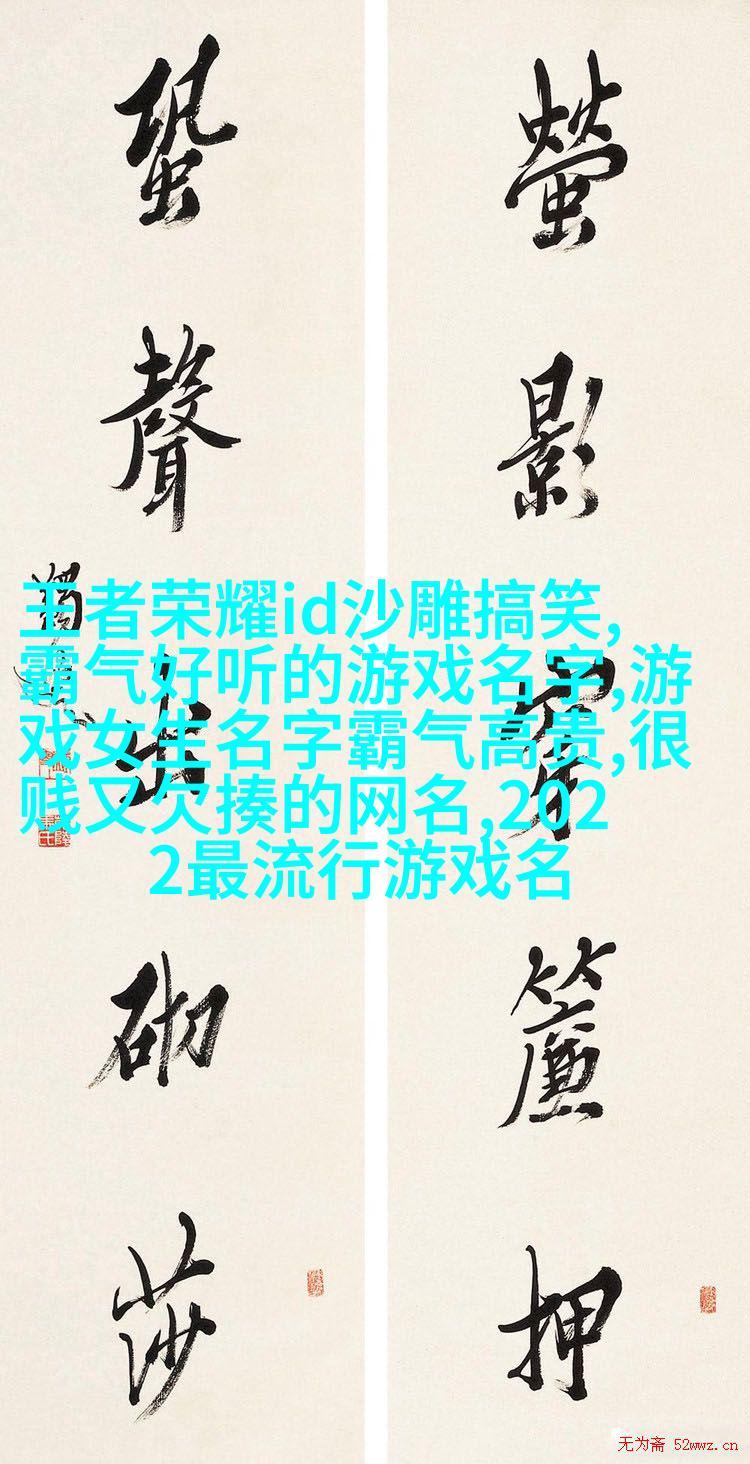 螢影穿簾押
蛩聲出砌莎
王者荣耀id沙雕搞笑,
霸气好听的游戏名字,游
戏女生名字霸气高贵,很
贱又欠揍的网名,202
2最流行游戏名
无为斋 52wwz.cn